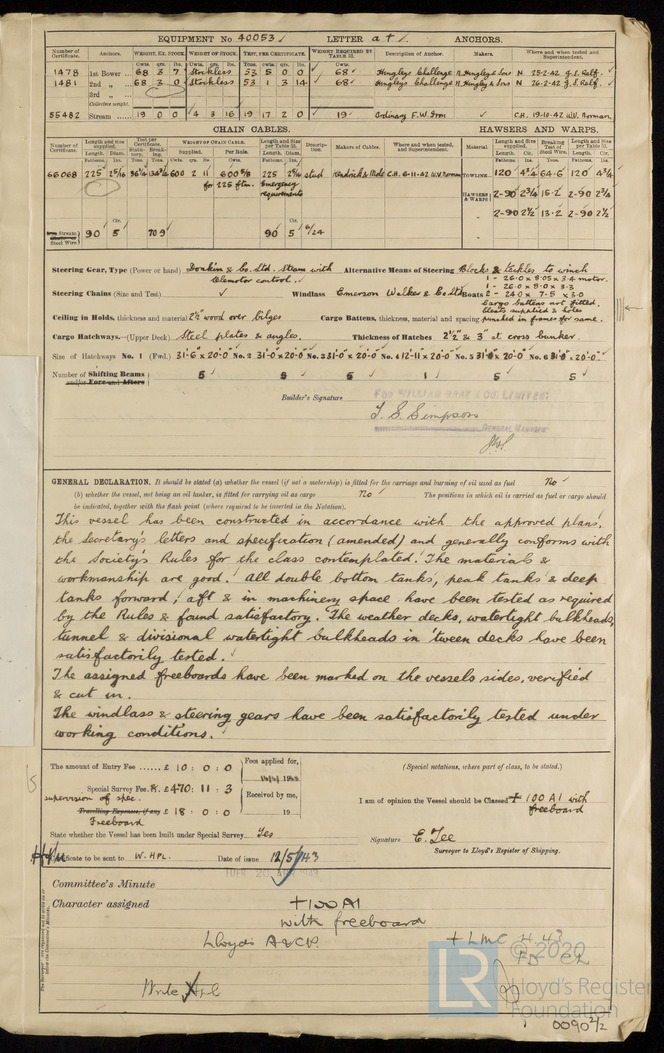 EQUIPMENT No. 40053 LETTER a† ANCHORS.
Number of Certificate. Anchors. WEIGHT, EX. STOCK. WEIGHT OF STOCK. TEST, PER CERTIFICATE. WEIGHT REQUIRED BY TABLE 53. Description of Anchor. Makers. Where and when tested and Superintendent.
Cwts. qrs. lbs. Cwts. qrs. lbs. Tons. cwts. qrs. lbs. Cwts.
1478 1st Bower ... 68 3 7 Stockless 53 5 0 0 68 Hingleys Challenge N. Hingley & Sons N 25-2-42 J.S. Relf.
1481 2nd „ 68 3 0 Stockless 53 1 3 14 68 Hingleys Challenge N. Hingley & Sons N 26-2-42 J.S. Relf.
3rd „
Collective weight.
55482 Stream 19 0 0 4 3 16 19 17 2 0 19 Ordinary F.W. Iron C.H. 19-10-42 W.V. Norman
CHAIN CABLES. HAWSERS AND WARPS.
Number of Certificate. Length and size supplied. Test per Certificate. WEIGHT OF CHAIN CABLE. Length and size per Table 53. Description. Makers of Cables. Where and when tested, and Superintendent. Material Length and size supplied. Breaking Test of Steel Wire. Length and size per Table 53.
Length. Diam. Statutory. Breaking. Supplied. Per Rule. Length. Diam.
Fathoms. Ins. Tons. Tons. Cwts. qrs. lbs. Cwts. Fathoms. Ins. Fathoms Ins. Tons. Fathoms. Ins.
66068 225 2 5/16 600 2 11 600 5/8 225 2 5/16 stud Hendrick & Mole C.H. 6-11-42 W.V. Norman TOWLINE 120 4¾ 64·6 120 4¾
for 225 ftm. Emergency requirements
HAWSERS & WARPS 2-90 2¾ 16·2 2-90 2¾
„ 2-90 2½ 13·2 2-90 2½
Iron Stream or Steel Wire 90 Cir. 5 70·9 90 Cir. 5 6/24
Steering Gear, Type (Power or hand) Donkin & Co. Ltd. Steam with Telemotor control. Alternative Means of Steering Blocks & tackles to winch
Steering Chains (Size and Test) Windlass Emerson Walker & Co Ltd Boats 1 - 26·0 x 8·05 x 3·4 motor.
1 - 26·0 x 8·0 x 3·3
2 - 24·0 x 7·5 x 3·0
Ceiling in Holds, thickness and material 2½" wood over bilges Cargo Battens, thickness, material and spacing Cargo battens not fitted. Cleats supplied & holes punched in frames for same.
Cargo Hatchways.—(Upper Deck) Steel plates & angles. Thickness of Hatches 2½" & 3" at cross bunker.
Size of Hatchways No. 1 (Fwd.) 31'-6" x 20'-0" No. 2 31'-0 x 20'-0" No. 3 31'-0 x 20'-0" No. 4 12'-11" x 20'-0" No. 5 31'-0 x 20'-0" No. 6 31'-0" x 20'-0"
Number of Shifting Beams and/or Fore and Afters 5 5 5 1 5 5
Builder's Signature FOR WILLIAM GRAY & CO. LIMITED.
T. S. Simpson
GENERAL MANAGER
GENERAL DECLARATION. It should be stated (a) whether the vessel (if not a motorship) is fitted for the carriage and burning of oil used as fuel No
(b) whether the vessel, not being an oil tanker, is fitted for carrying oil as cargo No The positions in which oil is carried as fuel or cargo should
be indicated, together with the flash point (where required to be inserted in the Notation).
This vessel has been constructed in accordance with the approved plans,
the Secretary's letters and specification (amended) and generally conforms with
the Society's Rules for the class contemplated. The materials &
workmanship are good. All double bottom tanks, peak tanks & deep
tanks forward, aft & in machinery space have been tested as required
by the Rules & found satisfactory. The weather decks, watertight bulkheads,
tunnel & divisional watertight bulkheads in 'tween decks have been
satisfactorily tested.
The assigned freeboards have been marked on the vessels sides, verified
& cut in.
The windlass & steering gears have been satisfactorily tested under
working conditions.
The amount of Entry Fee ...... £ 10 : 0 : 0 Fees applied for, (Special notations, where part of class, to be stated.)
Special Survey Fee. £ 470 : 11 : 3
supervision of spec. Received by me, I am of opinion the Vessel should be Classed + 100 A1 with freeboard
Travelling Expenses, if any £ 18 : 0 : 0 19
Freeboard
State whether the Vessel has been built under Special Survey Yes Signature E. Lee
Certificate to be sent to W. HPL. Date of issue 12/5/43 Surveyor to Lloyd's Register of Shipping.
Committee's Minute
Character assigned +100 A1
with freeboard
Lloyd's A&CP. + LMC 4.43
FD CL
Write Hpl
© 2020
LR Lloyd's Register
Foundation
0090 2/2